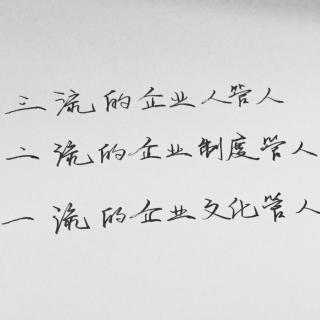 三流的企业人管人
二流的企业制度管人
一流的企业文化管人